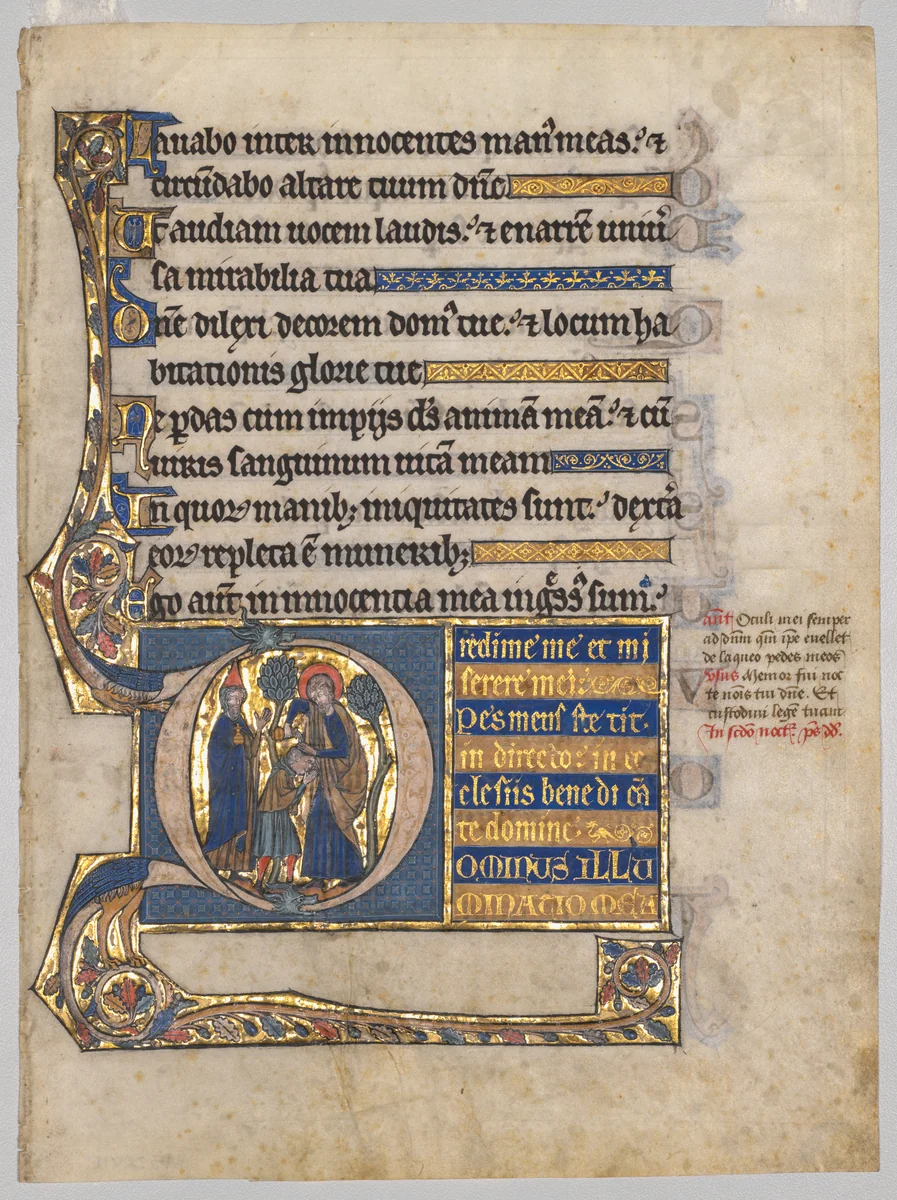 Lauabo inter innocentes man᾿ meas. ⁊
circūdabo altare tuum dn̄e
Ut audiam uocem laudis. ⁊ enarrē uniũ
sa mirabilia tua
Dn̄e dilexi decorem dom᾿ tue. ⁊ locum ha
bitationis glorie tue
Ne ꝑdas cum impijs d̄s animā meā. ⁊ cū
uiris sanguinum uitā meam
In quoꝝ manibꝫ iniquitates sunt. dext̃a
eoꝝ repleta ē muneribꝫ
Ego aut̄ in innocentia mea ing̃ss᾿ sum.
redime me et mi
serere mei
Pes meus ste tit.
in directo in ec
clesiis bene di cā
te domine
OMINUS ILLU
MINATIO MEA
ant̄ Oculi mei semper
ad dn̄m qm̄ ip̄e euellet
de laqueo pedes meos
vsus Memor fui noc
te nōis tui dn̄e. Et
custodiui legē tuam
In sc̄do noct. ps̄ dd.